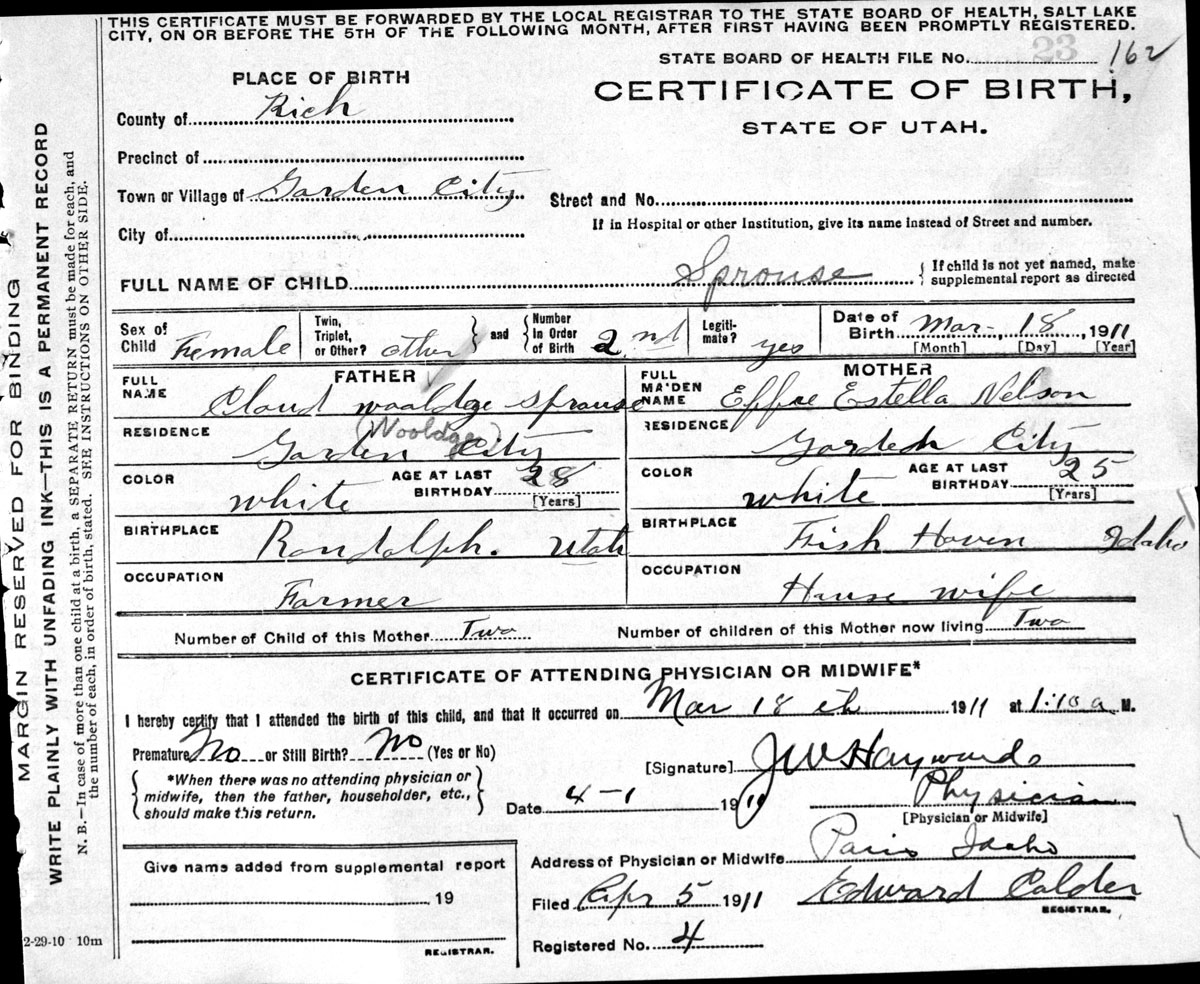 THIS CERTIFICATE MUST BE FORWARDED BY THE LOCAL REGISTRAR TO THE STATE BOARD OF HEALTH, SALT LAKE
CITY, ON OR BEFORE THE 5TH OF THE FOLLOWING MONTH, AFTER FIRST HAVING BEEN PROMPTLY REGISTERED.
23
STATE BOARD OF HEALTH FILE No. 162
PLACE OF BIRTH
CERTIFICATE OF BIRTH,
STATE OF UTAH.
County of Rich
Precinct of
Town or Village of Garden City
Street and No.
City of
If in Hospital or other Institution, give its name instead of Street and number.
FULL NAME OF CHILD Sprouse { If child is not yet named, make
supplemental report as directed
Sex of
Child Female
Twin,
Triplet,
or Other? other } and { Number
In Order
of Birth 2 nd
Legiti-
mate? yes
Date of
Birth Mar- 18, 1911
[Month] [Day] [Year]
FATHER
FULL
NAME Claud wooldge Sprouse
(Wooldge)
RESIDENCE Garden City
COLOR white
AGE AT LAST
BIRTHDAY 28
[Years]
BIRTHPLACE Randolph. Utah
OCCUPATION Farmer
MOTHER
FULL
MAIDEN
NAME Effie Estella Nelson
RESIDENCE Garden City
COLOR white
AGE AT LAST
BIRTHDAY 25
[Years]
BIRTHPLACE Fish Haven Idaho
OCCUPATION House wife
Number of Child of this Mother Two
Number of children of this Mother now living Two
CERTIFICATE OF ATTENDING PHYSICIAN OR MIDWIFE*
I hereby certify that I attended the birth of this child, and that it occurred on Mar 18 th 1911 at 1:10 a M.
Premature No or Still Birth? No (Yes or No)
{ *When there was no attending physician or
midwife, then the father, householder, etc.,
should make this return. }
[Signature] JW Haywards
Date 4-1 1911
Physician
[Physician or Midwife]
Address of Physician or Midwife Paris Idaho
Filed Apr 5 1911
Edward Calder
REGISTRAR.
Registered No. 4
Give name added from supplemental report
19
REGISTRAR.
2-29-10 10m
MARGIN RESERVED FOR BINDING
WRITE PLAINLY WITH UNFADING INK—THIS IS A PERMANENT RECORD
N. B.—In case of more than one child at a birth, a SEPARATE RETURN must be made for each, and
the number of each, in order of birth, stated. SEE INSTRUCTIONS ON OTHER SIDE.